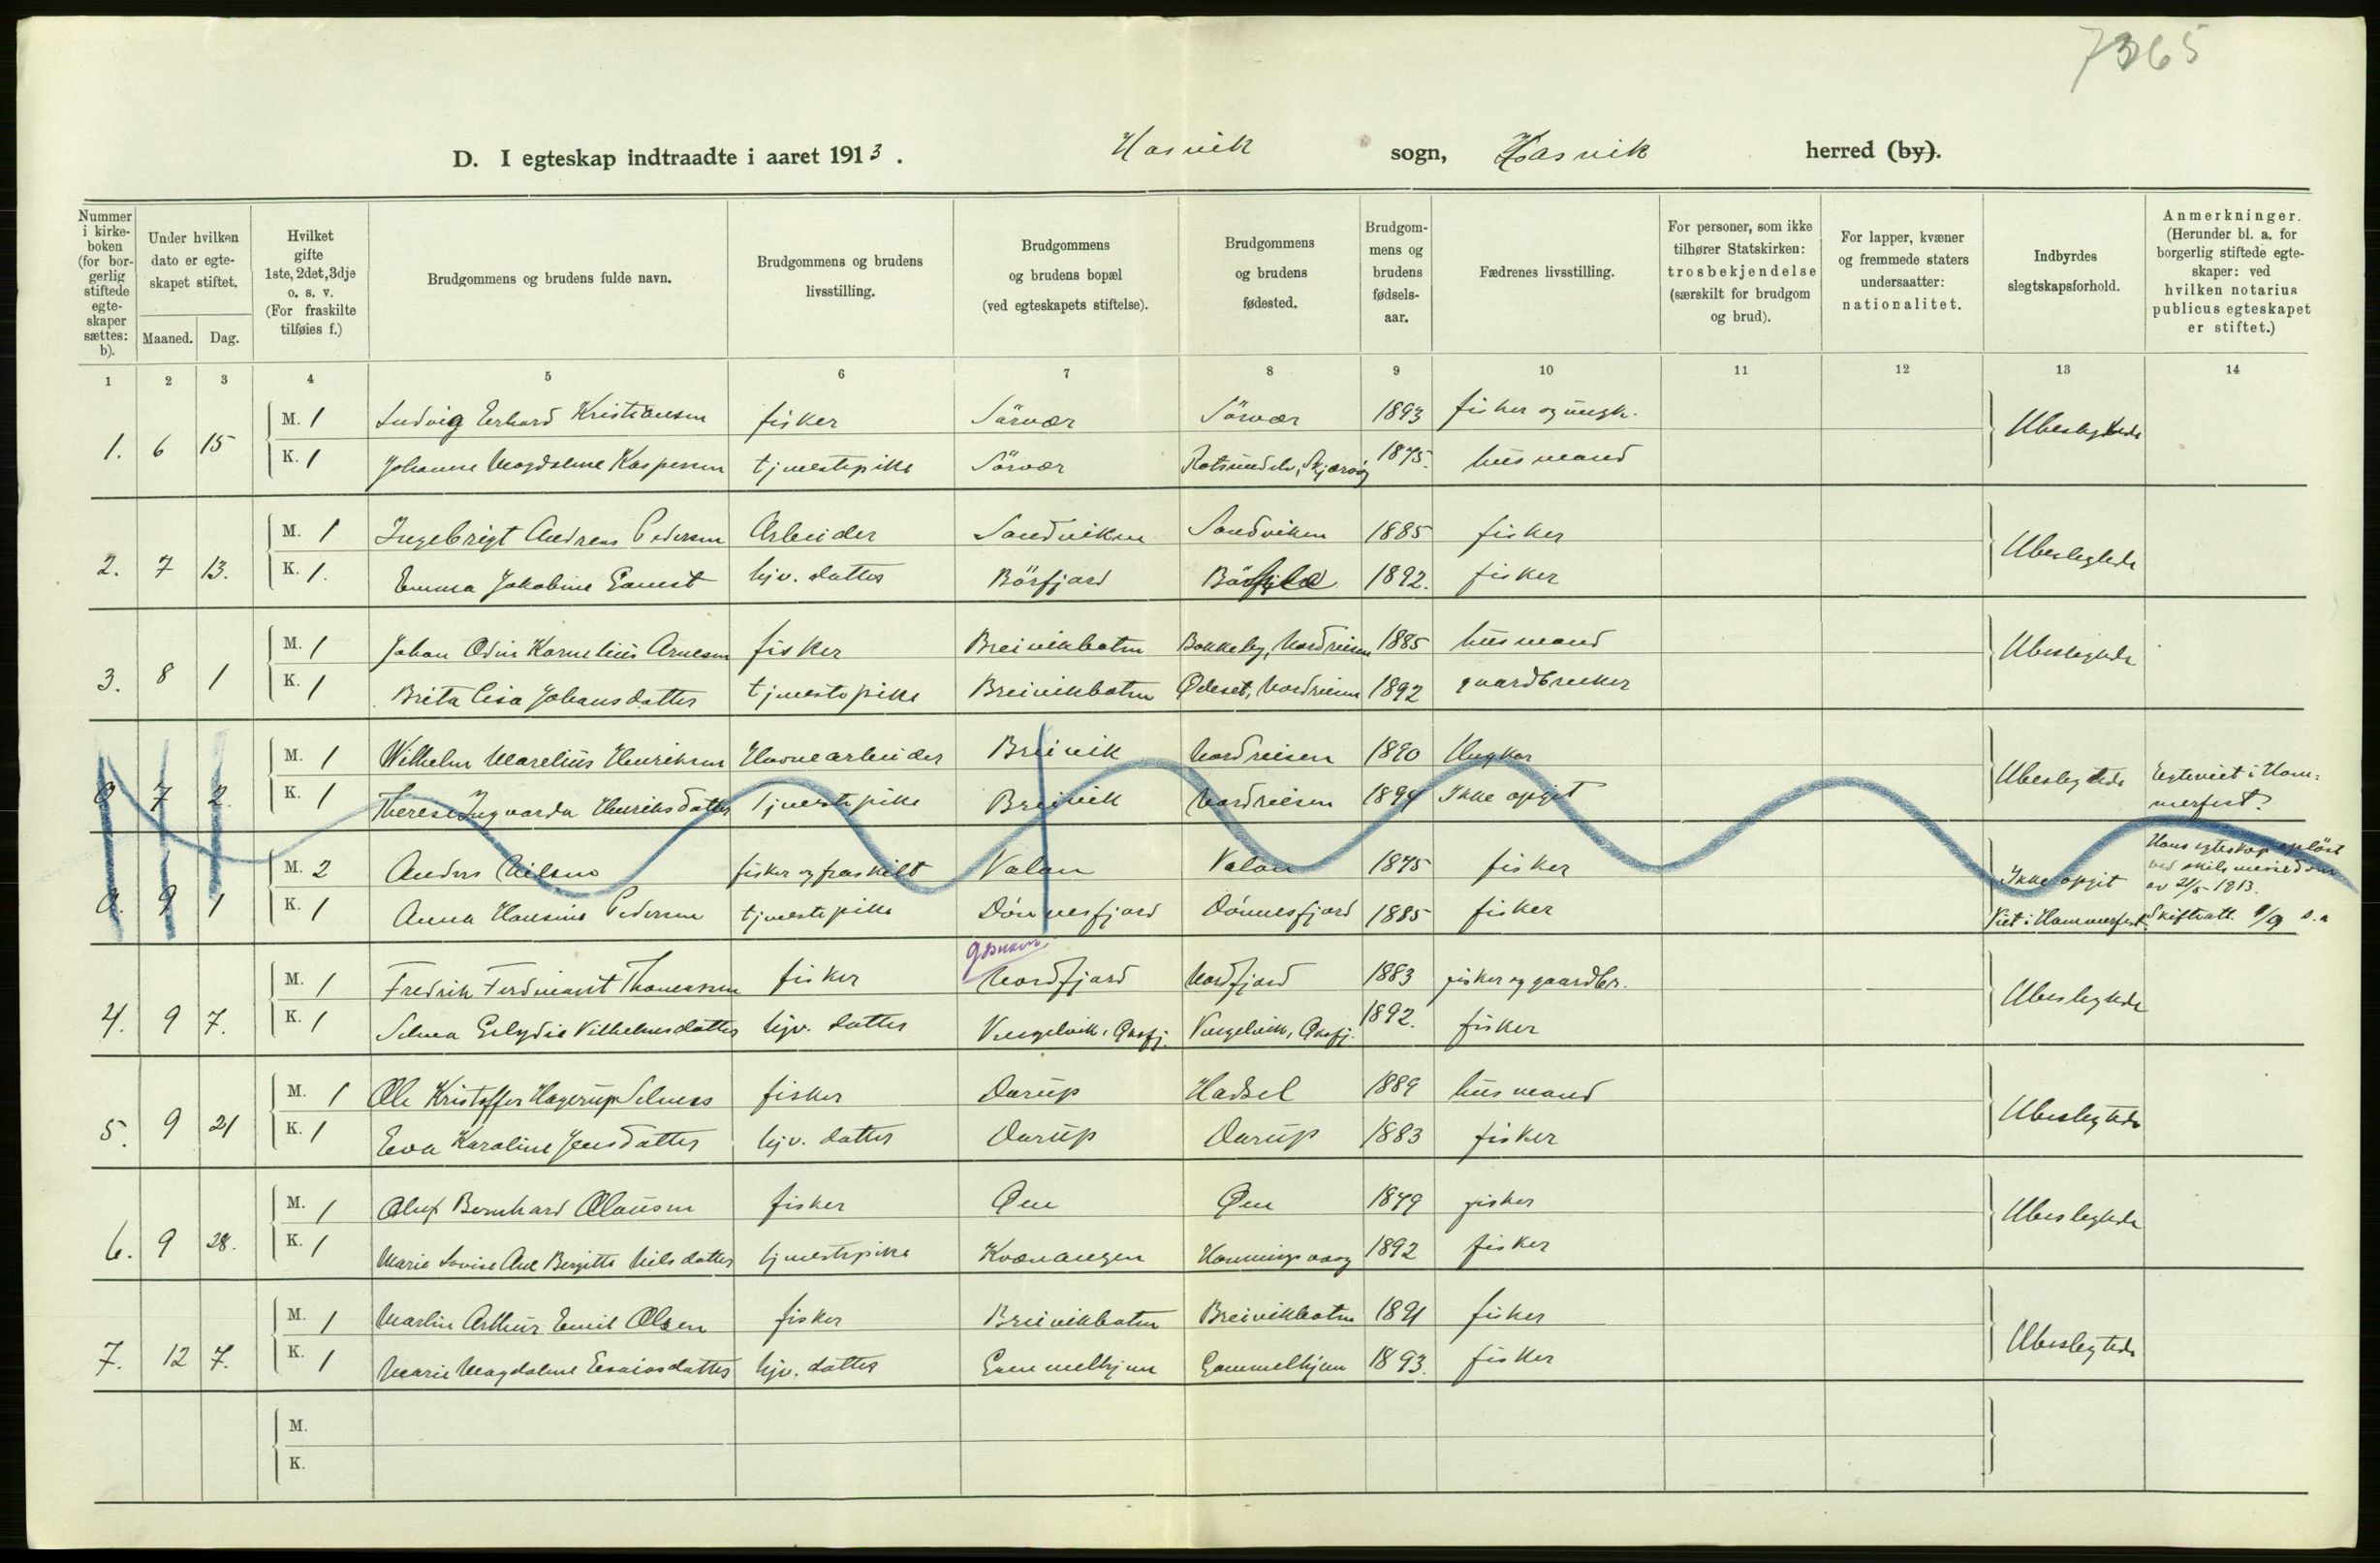 7365
D. I egteskap indtraadte i aaret 1913. Hasvik sogn, Hasvik herred (by).
Nummer i kirkeboken (for borgerlig stiftede egteskaper sættes: b).
Under hvilken dato er egteskapet stiftet.
Maaned. Dag.
Hvilket gifte 1ste, 2det, 3dje o. s. v. (For fraskilte tilføies f.)
Brudgommens og brudens fulde navn.
Brudgommens og brudens livsstilling.
Brudgommens og brudens bopæl (ved egteskapets stiftelse).
Brudgommens og brudens fødested.
Brudgommens og brudens fødselsaar.
Fædrenes livsstilling.
For personer, som ikke tilhører Statskirken: trosbekjendelse (særskilt for brudgom og brud).
For lapper, kvæner og fremmede staters undersaatter: nationalitet.
Indbyrdes slegtskapsforhold.
Anmerkninger. (Herunder bl. a. for borgerlig stiftede egteskaper: ved hvilken notarius publicus egteskapet er stiftet.)
1 2 3 4 5 6 7 8 9 10 11 12 13 14
1. 6 15 M. 1 Ludvig Erhard Kristiansen fisker Sörvær Sörvær 1893 fisker og ungk. Ubeslegtede
K. 1 Johanne Magdalene Kaspersen tjenestepike Sörvær Rotsundelv, Skjærvöy 1875. husmand
2. 7 13. M. 1 Ingebrigt Andreas Pedersen Arbeider Sandviken Sandviken 1885 fisker Ubeslegtede
K. 1. Emma Jakobine Gamst hjv. datter Börfjord 1892. fisker
3. 8 1 M. 1 Johan Odin Kornelius Arnesen fisker Breivikbotn Bakkeby, Nordreisen 1885 husmand Ubeslegtede
K. 1 Brita Lisa Johansdatter tjenestepike Breivikbotn Nordreisen 1892 gaardbruker
0 7 2. M. 1 Wilhelm Marelius Henriksen Havnearbeider Breivik Nordreisen 1890 Ungkar Ubeslegtede Egteviet i Hammerfest.
K. 1 Therese Ingvarda Henriksdatter tjenestepike Breivik Nordreisen 1894 Ikke opgit
0. 9 1 M. 2 Anders Nilsen fisker og fraskilt Valan Valan 1875 fisker Ikke opgit Hans egteskap oplöst ved skilsmissedom av 21/5-1913.
K. 1 Anna Hansine Pedersen tjenestepike Dönnesfjord Dönnesfjord 1885 fisker Viet i Hammerfest. Skifteatt. 1/9 s. a
4. 9 7. M. 1 Fredrik Ferdinant Thomassen fisker Nordfjord Nordfjord 1883 fisker og gaardbr. Ubeslegtede
K. 1 Selma Vilhelmsdatter hjv. datter Vengelvik, Öksfj. Vengelvik, Öksfj. 1892. fisker
5. 9 21 M. 1 Ole Kristoffer Hagerup Selnes fisker Darup Hadsel 1889 husmand Ubeslegtede
K. 1 Eva Karoline Jensdatter hjv. datter Darup Darup 1883 fisker
6. 9 28. M. 1 Oluf Bernhard Olausen fisker Öen Öen 1879 fisker Ubeslegtede
K. 1 Marie Lovise Ane Bergitte Nilsdatter tjenestepike Kvænangen Honningsvaag 1892 fisker
7. 12 7. M. 1 Martin Arthur Emil Olsen fisker Breivikbotn Breivikbotn 1891 fisker Ubeslegtede
K. 1 Marie Magdalene Esaiasdatter hjv. datter Gammelhjem Gammelhjem 1893. fisker
M.
K.